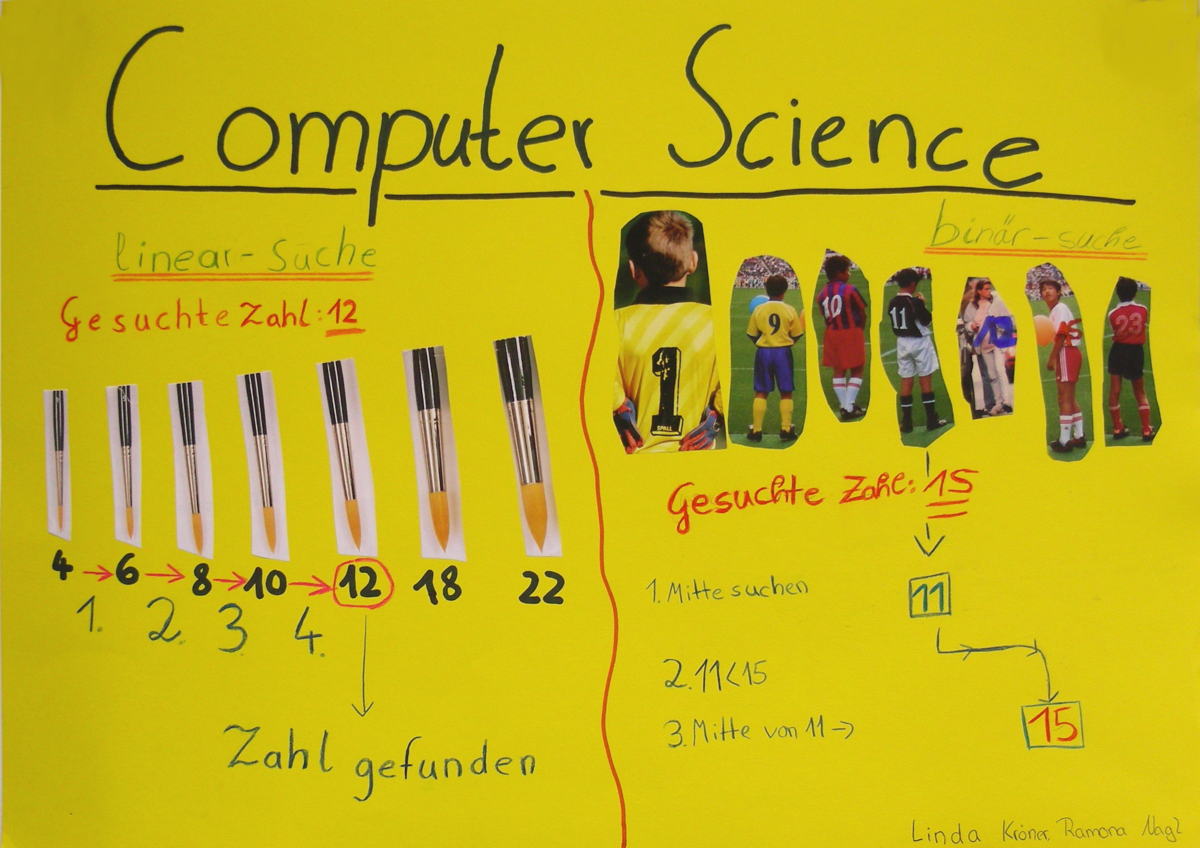 Computer Science
linear-Suche
Gesuchte Zahl: 12
4 → 6 → 8 → 10 → 12 18 22
1. 2. 3. 4.
Zahl gefunden
binär-suche
1 9 10 11 15 23
SPALL
Gesuchte Zahl: 15
1. Mitte suchen
11
2. 11<15
3. Mitte von 11 →
15
Linda Kröner, Ramona Nagl